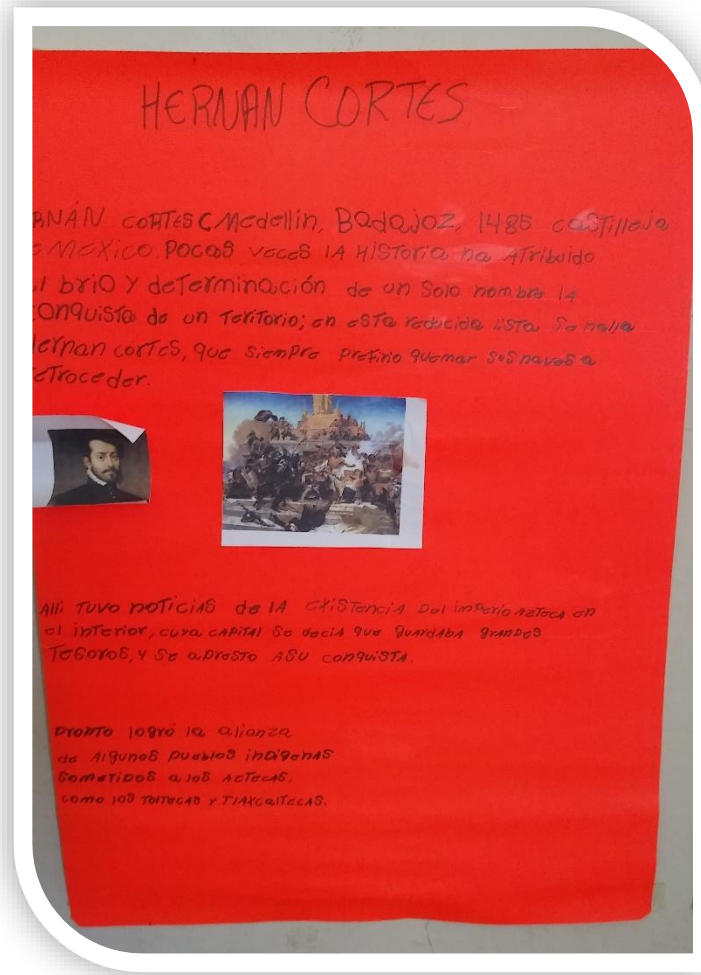 HERNAN CORTES
RNÁN CORTES (Medellín, Badajoz, 1485 castilleja
MEXICO. POCAS veces lA HISTORIA ha ATribuido
l brio y deTerminación de un solo nombre la
ONQUISTA de un TeriTorio; en esta reducida lista Se halla
ernan corTES, que siempre prefirio quemar sus naves a
eTroceder.
Alli TUVO noTicias de lA exisTencia Del imperio AzTeca en
el inTerior, cuya CAPITAl Se decia que guardaba grandes
Tesoros, y se apresto A su conquisTA.
pronTo logró la alianza
de Algunos pueblos indigenas
SomeTiDos a los AcTecas,
como los TolTecas y TlAxcalTecAS.